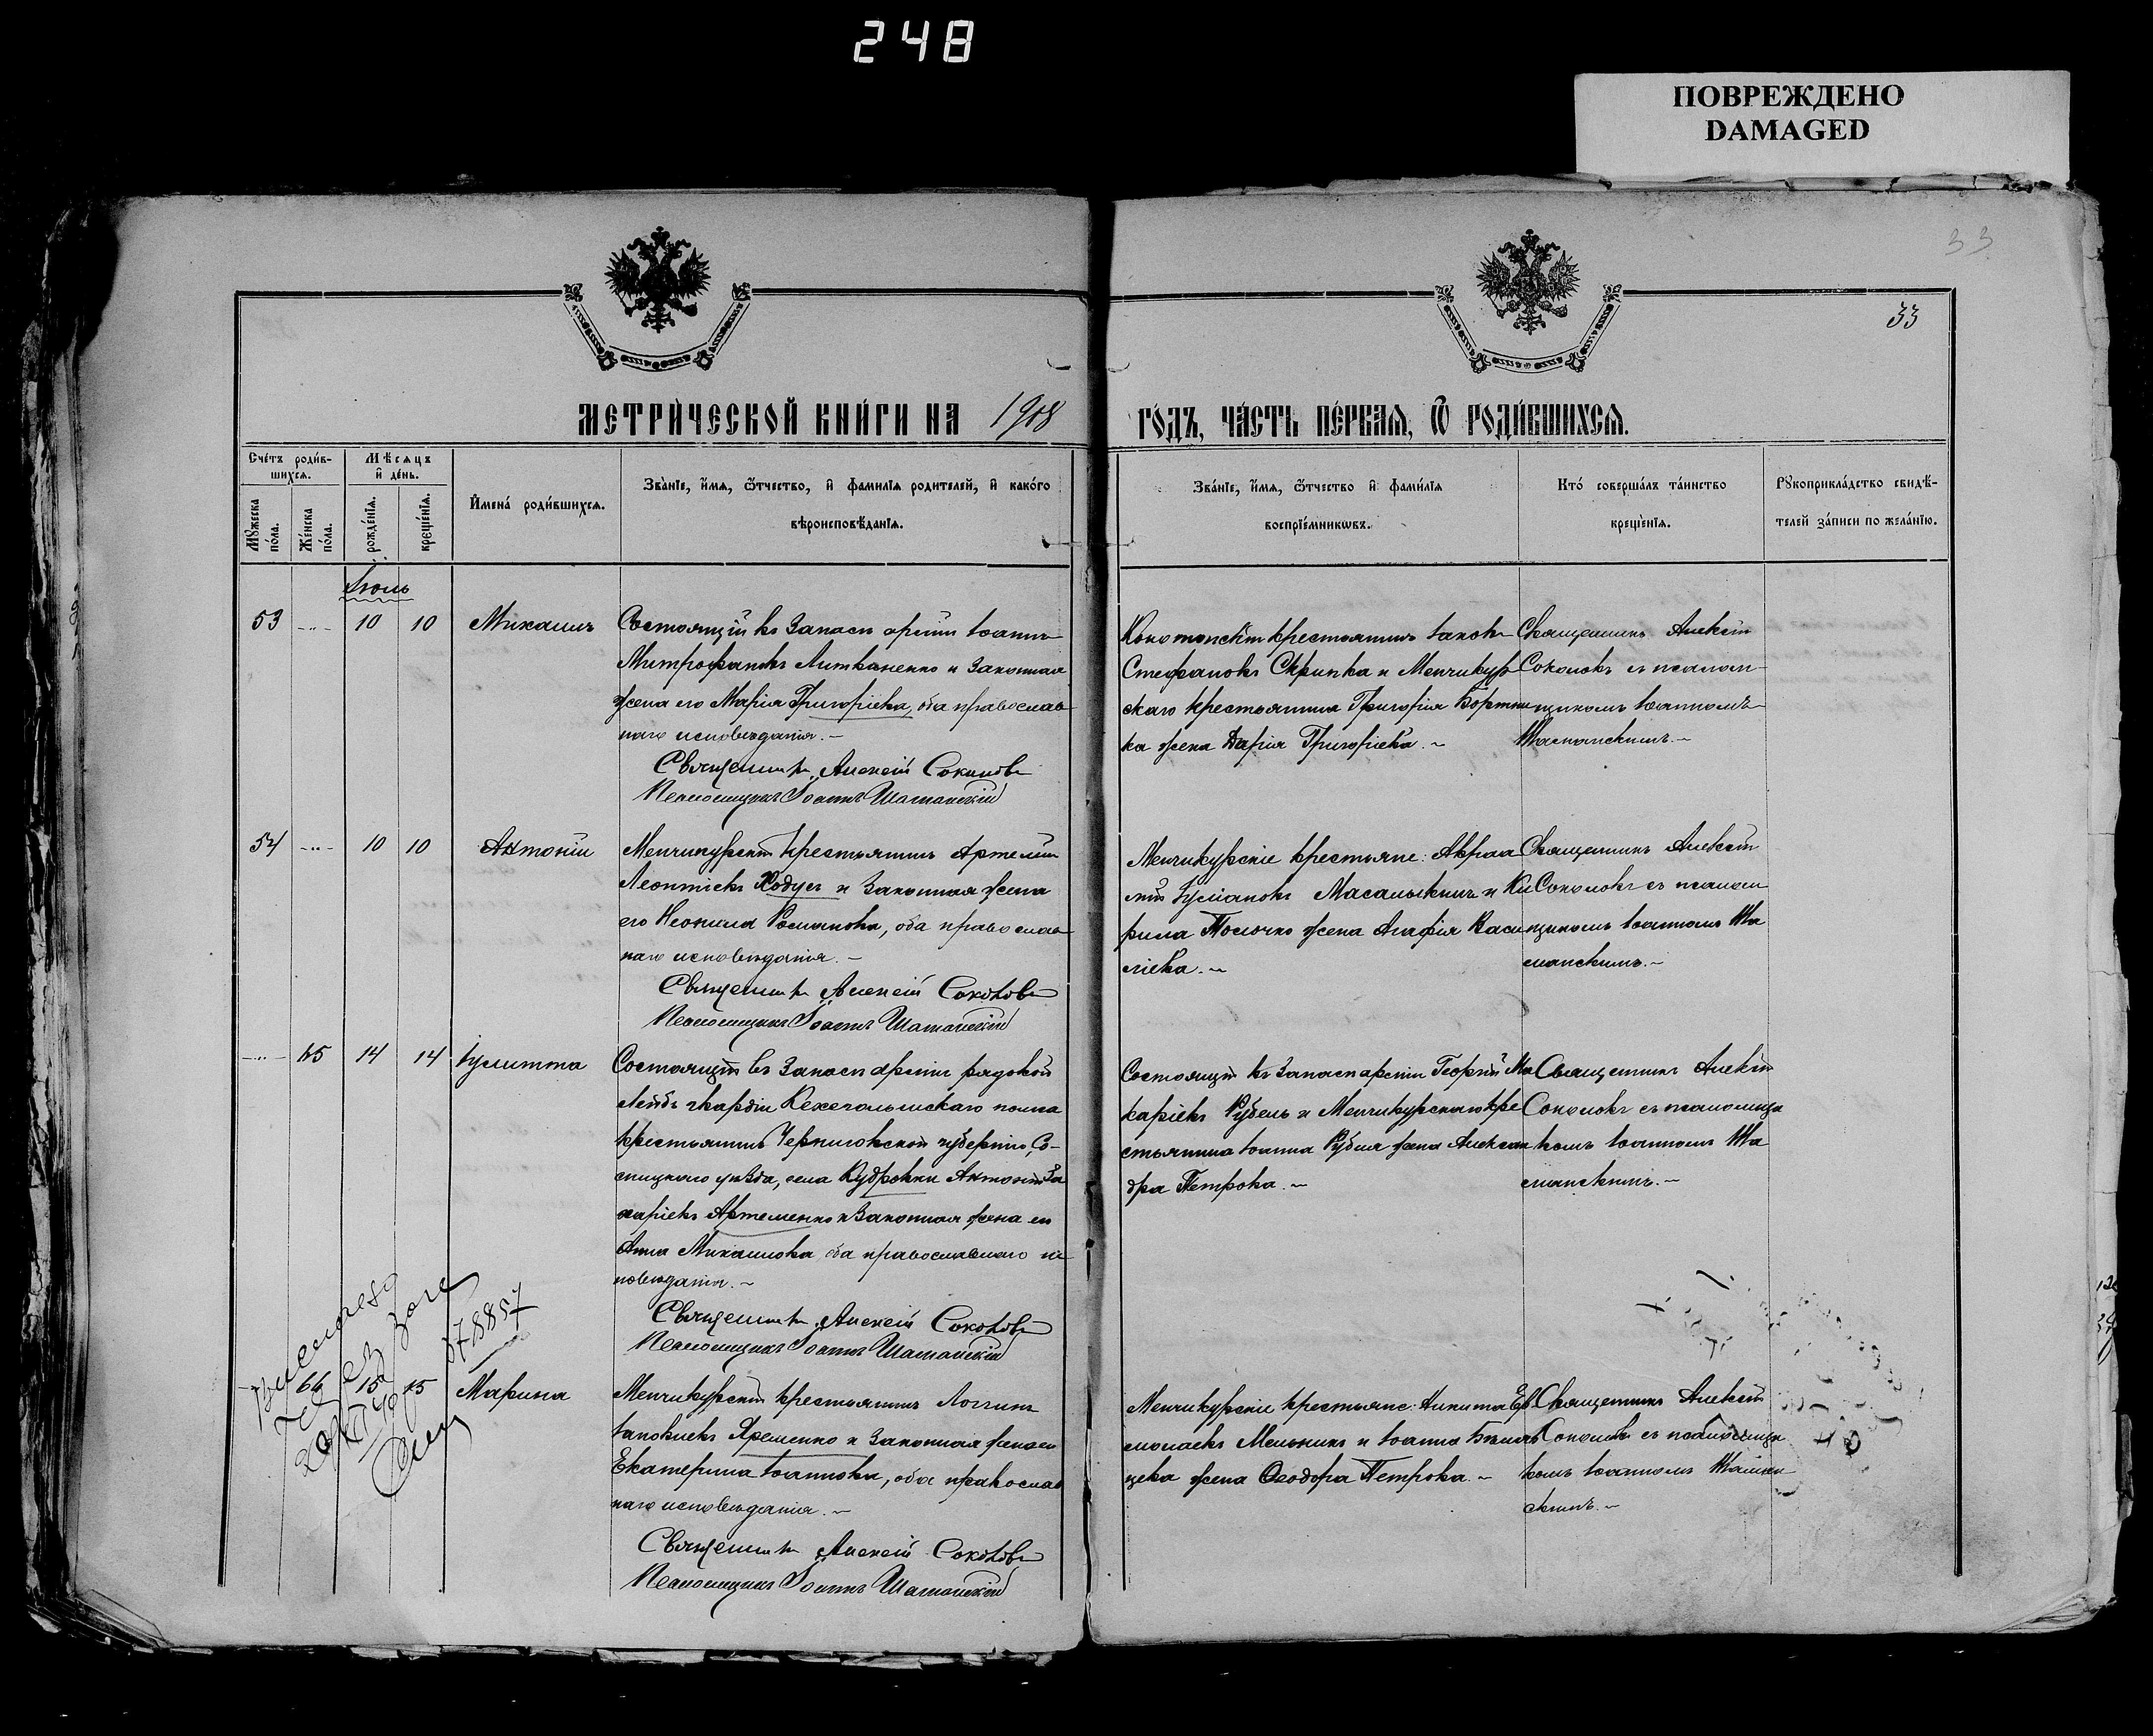 248
ПОВРЕЖДЕНО
DAMAGED
33
33
МЕТРИ́ЧЕСКОЙ КНИ́ГИ НА 1908 ГО́ДЪ, ЧА́СТЬ ПЕ́РВАѦ, Ѿ РОДИ́ВШИХСѦ.
Сче́тъ роди́в-
шихсѧ.
Мꙋжеска по́ла.
Же́нска по́ла.
Мѣсѧцъ
и҆ де́нь.
рожде́нїѧ.
креще́нїѧ.
И҆мена́ роди́вшихсѧ.
Зва́нїе, и҆́мѧ, ѻ҆́тчество, и҆ фами́лїѧ роди́телей, и҆ како́гѡ
вѣроисповѣ́данїѧ.
Зва́нїе, и҆́мѧ, ѻ҆́тчество и҆ фами́лїѧ
воспрїе́мникѡвъ.
Кто́ соверша́лъ та́инство
креще́нїѧ.
Рꙋкоприкла́дство свидѣ́-
телей за́писи по жела́нїю.
Іюль
53 10 10 Михаилъ
Состоящій въ запасѣ арміи Іоаннъ
Митрофановъ Литвиненко и законная
жена его Марія Григоріева, оба православ
наго исповѣданія.
Священникъ Алексій Соколовъ
Псаломщикъ Іоаннъ Шатанскій
Конотопскій крестьянинъ Іаковъ
Стефановъ Скрипка и Менчикур
скаго крестьянина Григорія Бортни
ка жена Дарія Григоріева.
Священникъ Алексій
Соколовъ съ псалом
щикомъ Іоанномъ
54 10 10 Антоній
Менчикурскій крестьянинъ Артемій
Леонтіевъ Ходусъ и законная жена
его Неонила Романова, оба православ
наго исповѣданія.
Священникъ Алексій Соколовъ
Псаломщикъ Іоаннъ Шатанскій
Менчикурскіе крестьяне: Авраа
мій Іуліановъ Масалыкинъ и Ки
рила Толочко жена Агафія Васи
ліева.
Священникъ Алексій
Соколовъ съ псалом
щикомъ Іоанномъ
65 14 14 Іулитта
Состоящій въ запасѣ арміи рядовой
Лейбъ гвардіи Кексгольмскаго полка
крестьянинъ Черниговской губерніи, Со-
сницкаго уѣзда, села Кудровки Антоній За
харіевъ Артеменко и законная жена его
Анна Михаилова оба православнаго ис
повѣданія.
Священникъ Алексій Соколовъ
Псаломщикъ Іоаннъ Шатанскій
Состоящій въ запасѣ арміи Георгій Ма
каріевъ Рубель и Менчикурскаго кре
стьянина Іоанна Рубля жена Алексан
дра Петрова.
Священникъ Алексій
Соколовъ съ псаломщи
комъ Іоанномъ
78857
66 15 15 Марина
Менчикурскій крестьянинъ Логгинъ
Іаковлевъ Яременко и законная жена его
Екатерина Іоаннова, оба православ
наго исповѣданія.
Священникъ Алексій Соколовъ
Псаломщикъ Іоаннъ Шатанскій
Менчикурскіе крестьяне: Никита Ер
молаевъ Мельникъ и Іоанна
жена Ѳеодора Петрова.
Священникъ Алексій
Соколовъ съ псаломщи
комъ Іоанномъ